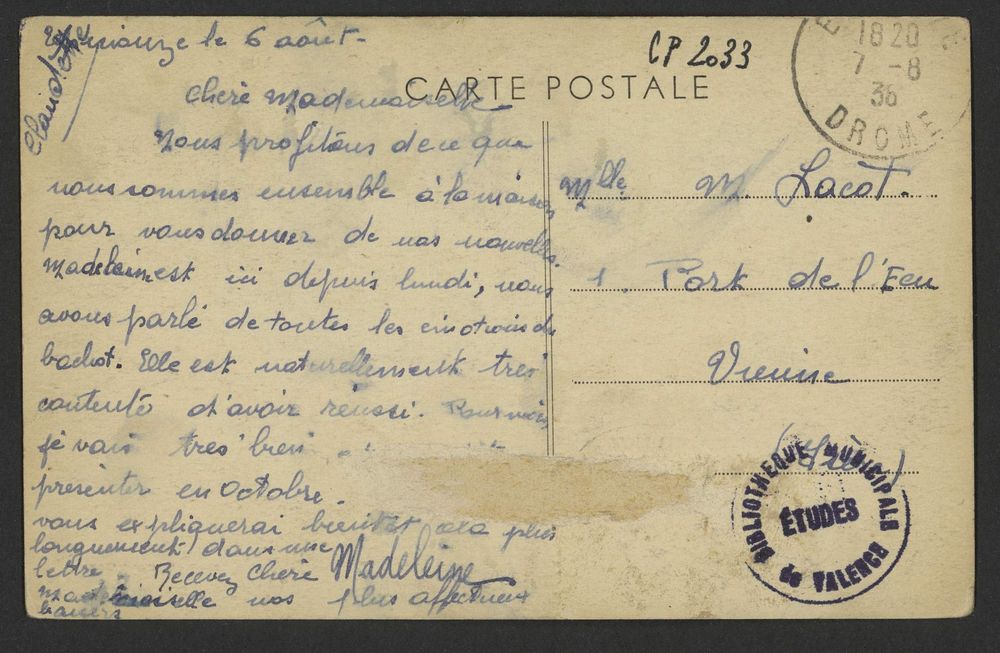 le 6 août-
Claudette
CP 2033
CARTE POSTALE
18 20
7 -8
36
DROME
Chère Mademoiselle
Nous profitons de ce que
nous sommes ensemble à la maison
pour vous donner de nos nouvelles.
Madeleine est ici depuis lundi, nous
avons parlé de toutes les émotions du
bachot. Elle est naturellement très
contente d'avoir réussi. Pour moi
je vais très bien
présenter en Octobre.
vous expliquerai bientôt cela plus
longuement dans une
lettre. Recevez Chère
Mademoiselle nos plus affectueux
baisers
Madeleine
Mlle M. Lacot.
1. Port de l'Ecu
Vienne
(Isère)
BIBLIOTHEQUE MUNICIPALE
ÉTUDES
de VALENCE